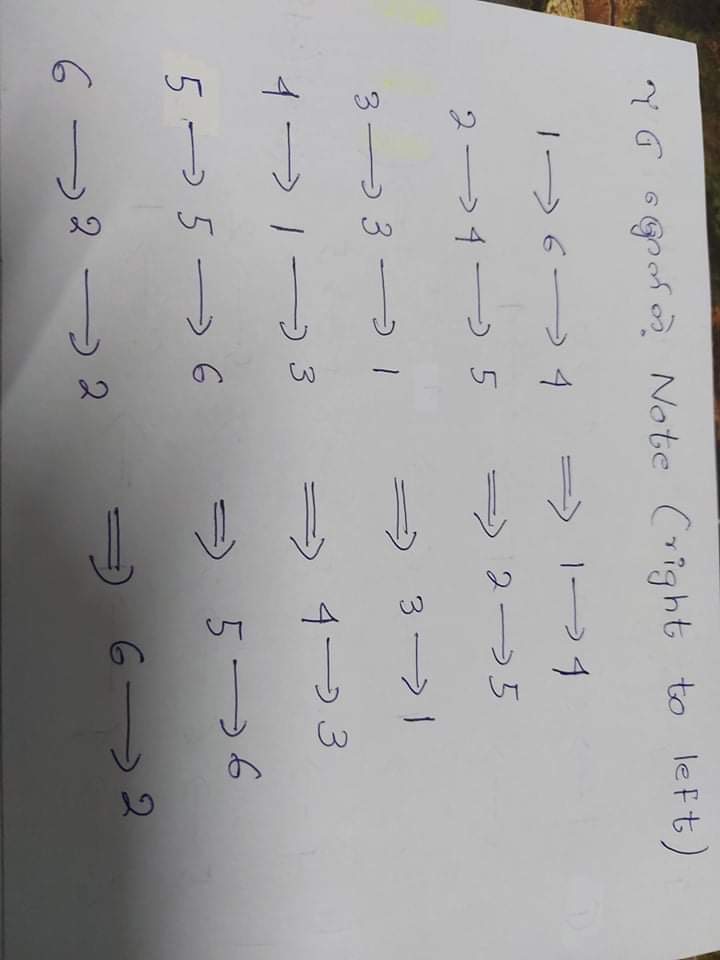 Note (right to left)
1 → 6 → 4 ⇒ 1 → 4
2 → 4 → 5 ⇒ 2 → 5
3 → 3 → 1 ⇒ 3 → 1
4 → 1 → 3 ⇒ 4 → 3
5 → 5 → 6 ⇒ 5 → 6
6 → 2 → 2 ⇒ 6 → 2